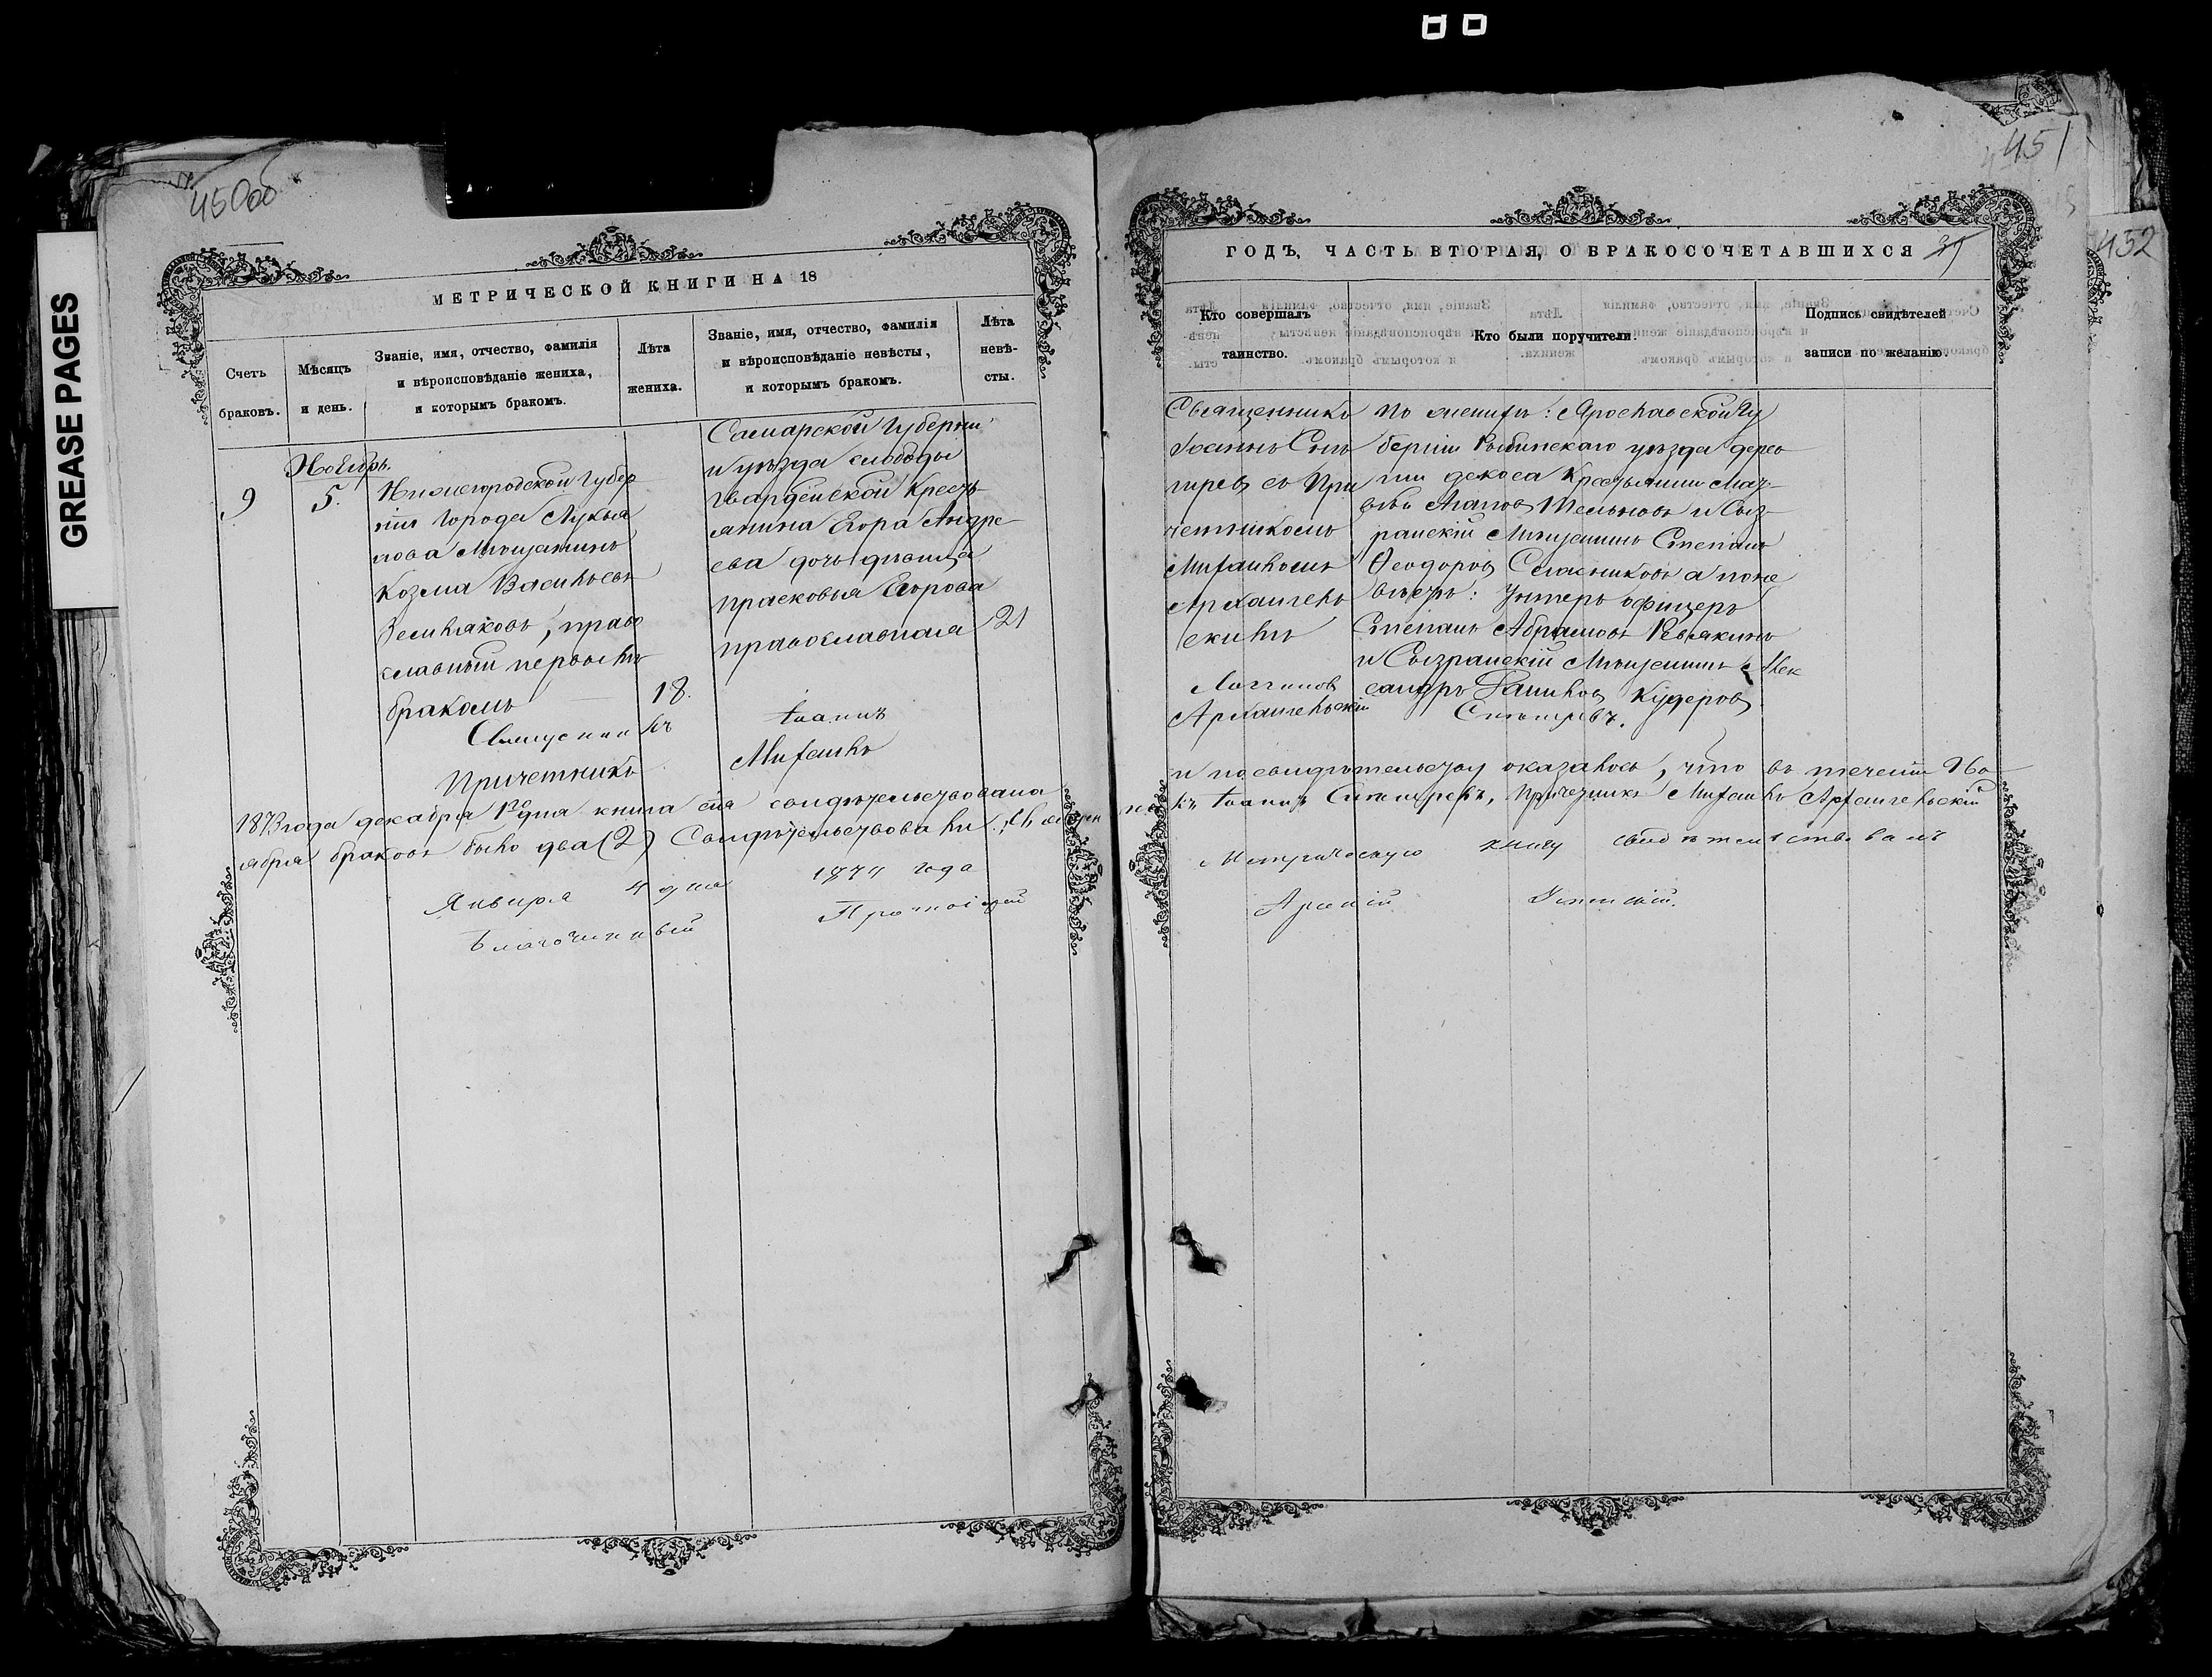 GREASE PAGES
450об
МЕТРИЧЕСКОЙ КНИГИ НА 18
Счетъ
браковъ.
Мѣсяцъ
и день.
Званіе, имя, отчество, фамилія
и вѣроисповѣданіе жениха,
и которымъ бракомъ.
Лѣта
жениха.
Званіе, имя, отчество, фамилія
и вѣроисповѣданіе невѣсты,
и которымъ бракомъ.
Лѣта
невѣ-
сты.
Ноябрь.
9
5.
Нижегородской Губер
ніи Города Лукоя
нова Мѣщанинъ
Козма Васильевъ
Земляковъ, право
славный первымъ
бракомъ
18.
Самарской Губерніи
и уѣзда слободы
Гвардейской Кресть
янина Егора Андре
ева дочь дѣвица
Прасковья Егорова
православная
21
Священникъ Іоаннъ
Причетникъ Михаилъ
1873 года декабря 1го дня книга сія свидѣтельствована
ября браковъ было два (2) Свидѣтельствовали: Священ
Января 4 дня 1874 года
Благочинный Протоіерей
451
452
ГОДЪ, ЧАСТЬ ВТОРАЯ, О БРАКОСОЧЕТАВШИХСЯ
Кто совершалъ
таинство.
Кто были поручители.
Подпись свидѣтелей
записи по желанію.
Священникъ
Іоаннъ Сни
гиревъ съ При
четникомъ
Михаиломъ
Архангель
скимъ
По женихѣ: Ярославской Гу
берніи Рыбинскаго уѣзда дерев
ни Крестьянинъ Мат-
вѣй Агаповъ и Сыз-
ранскій Мѣщанинъ Степанъ
Ѳеодоровъ а по не
вѣстѣ: Унтеръ офицеръ
Степанъ Абрамовъ Ревякинъ
и Сызранскій Мѣщанинъ Алек
сандръ Кудеровъ
Снигиревъ.
Логгиновъ
Архангельскій
и по свидѣтельству оказалось, что въ теченіи Но
къ Іоаннъ Снигиревъ, Причетникъ Михаилъ Архангельскій
Метрическую книгу свидѣтельствовалъ
Арсеній